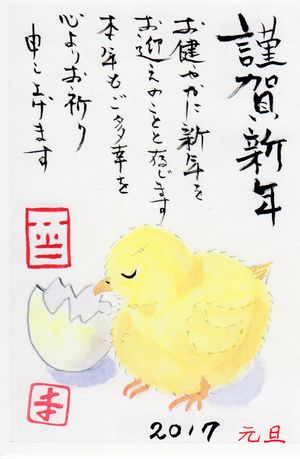 謹賀新年
お健やかに新年を
お迎えのことと存じます
本年もご多幸を
心よりお祈り
申し上げます
酉
2017 元旦